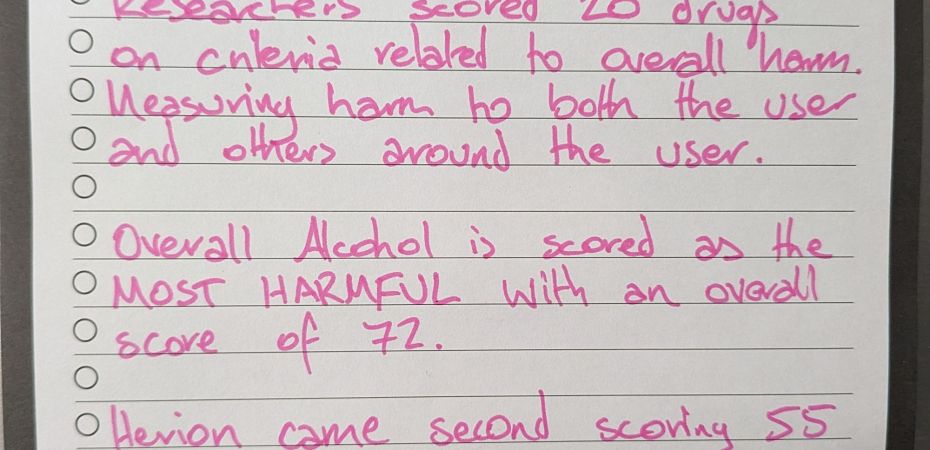 Researchers scored 20 drugs
on criteria related to overall harm.
Measuring harm to both the user
and others around the user.
Overall Alcohol is scored as the
MOST HARMFUL with an overall
score of 72.
Herion came second scoring 55